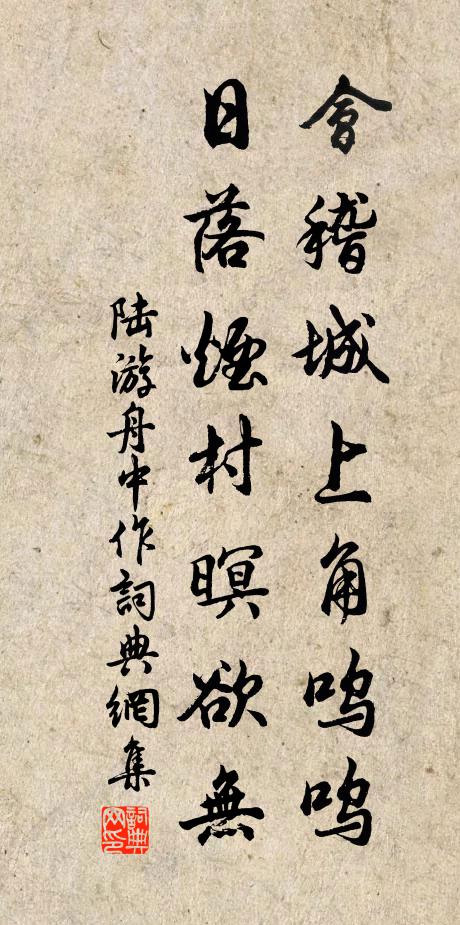 會稽城上角嗚嗚
日落煙村暝欲無
陆游舟中作詞典網集
詞典网印